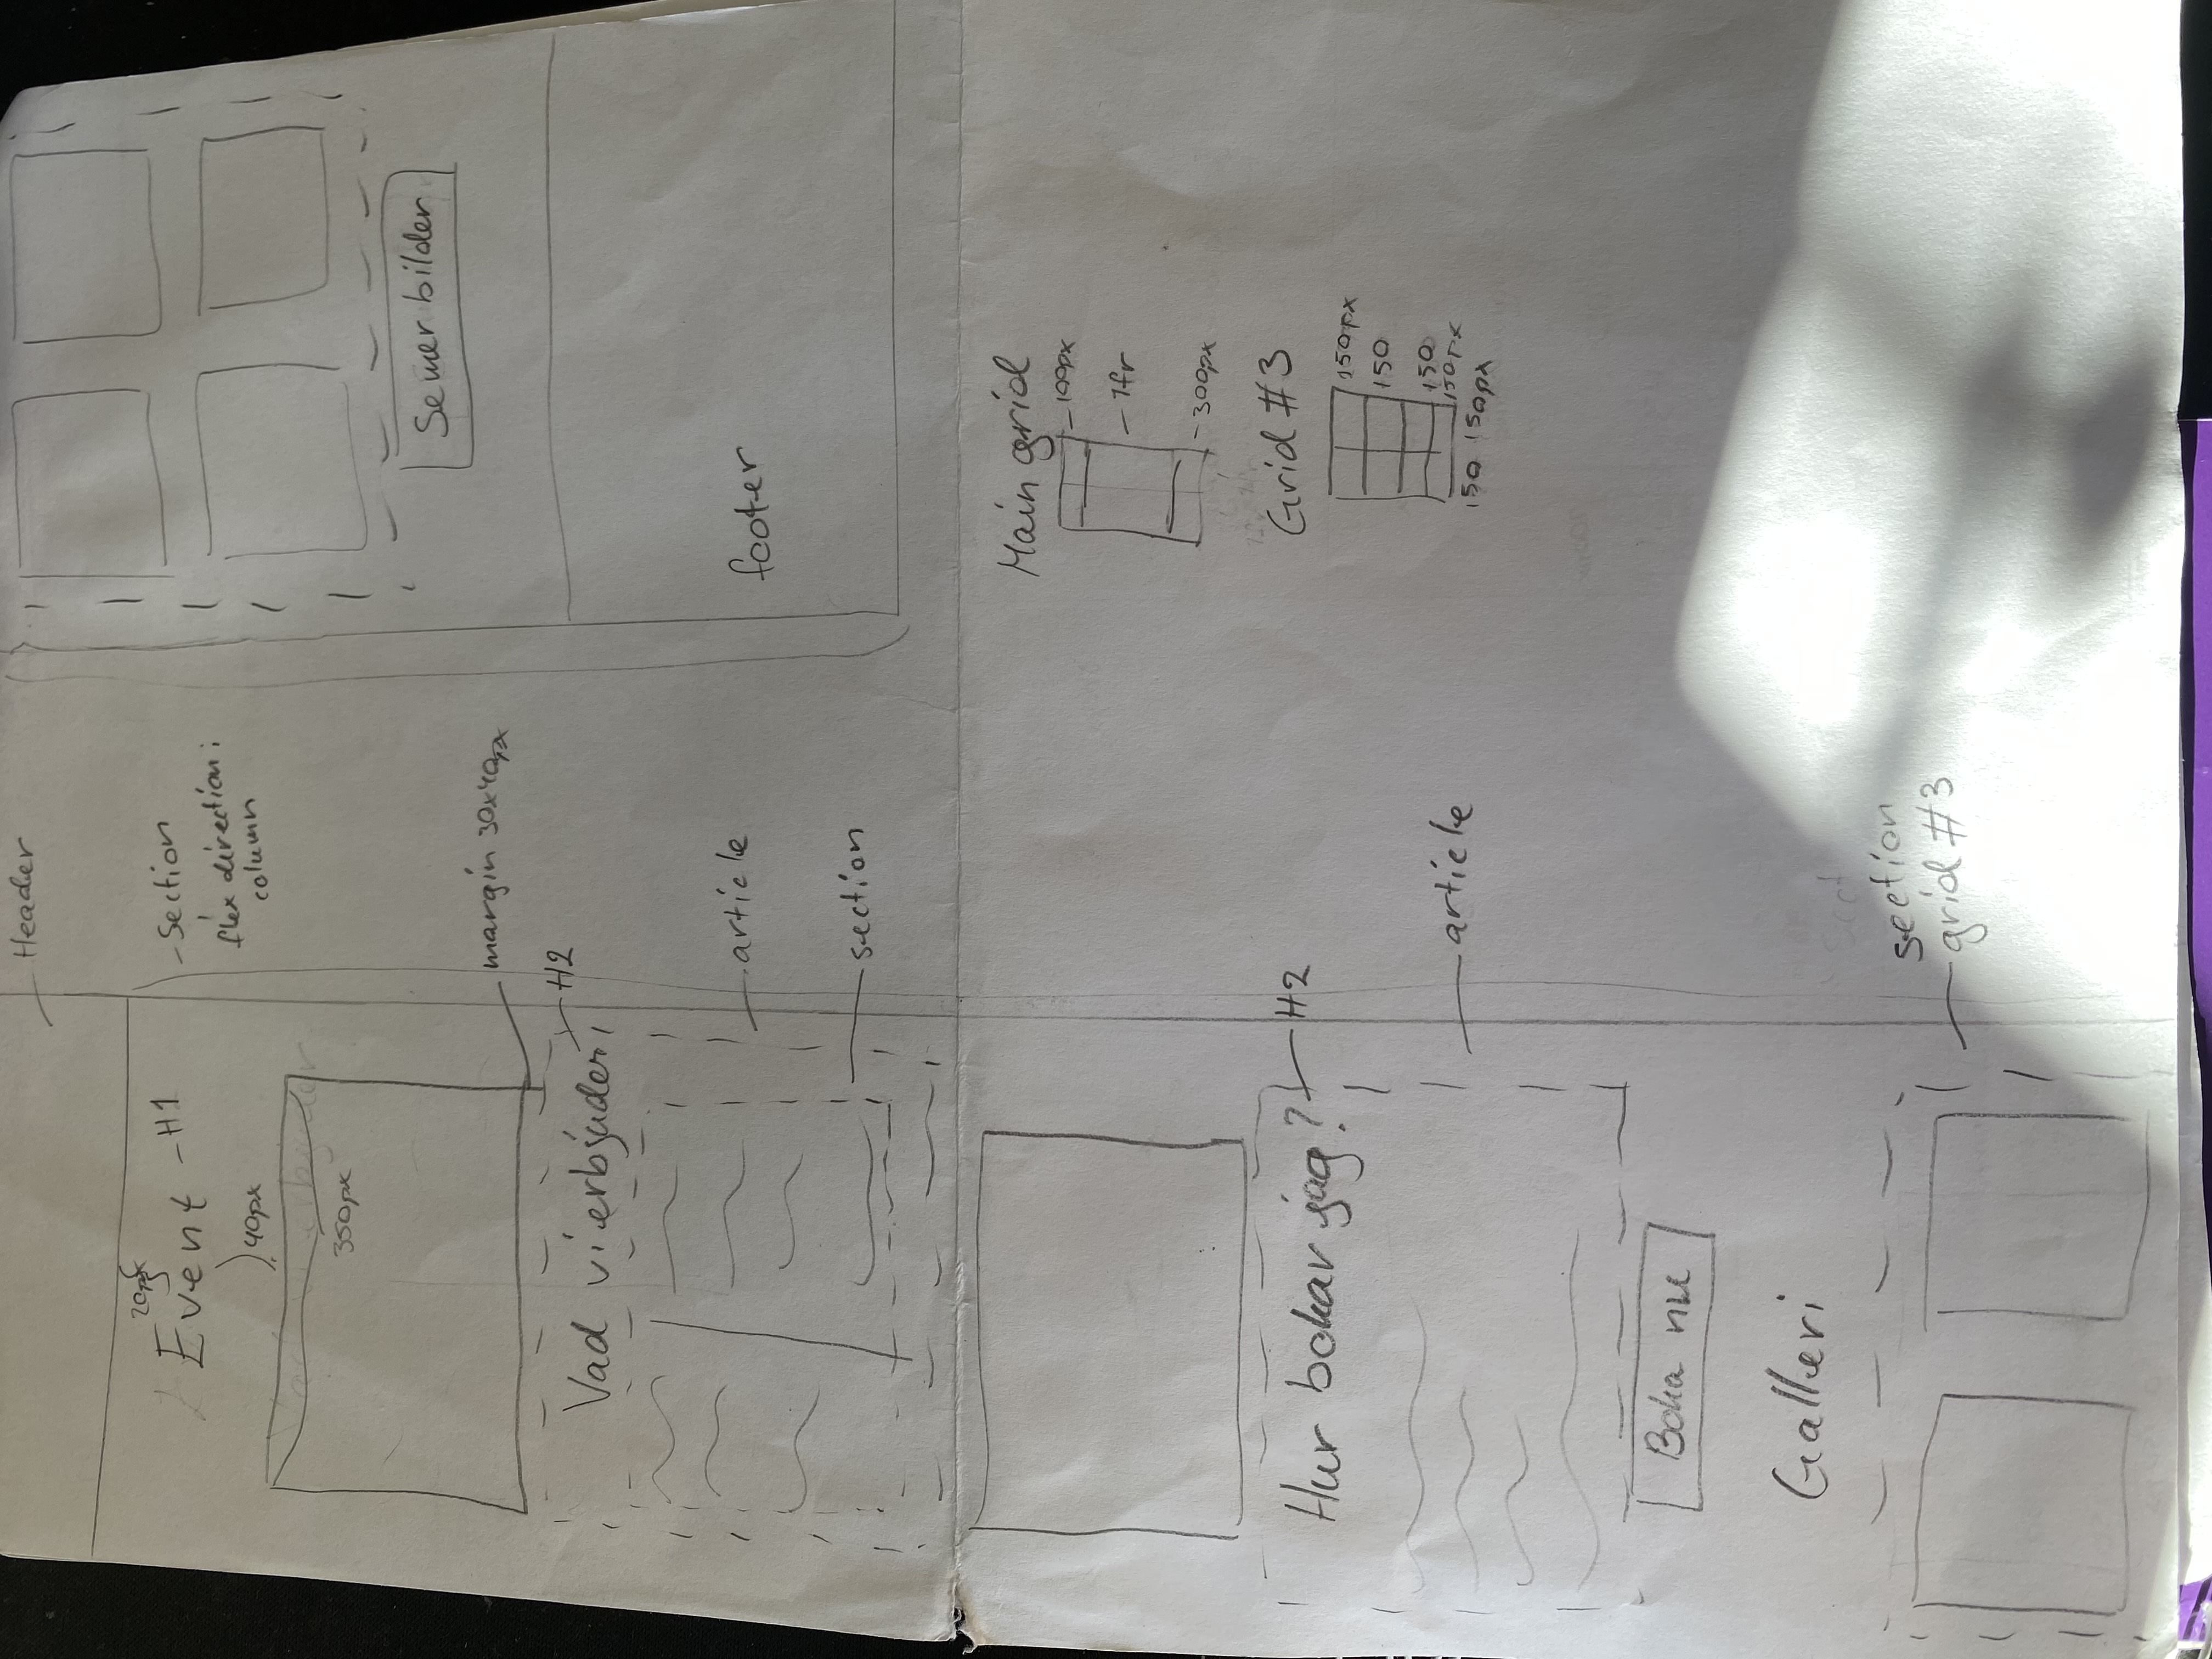 Header
20px
Event - H1
40px
350px
- Section
flex direction:
column
margin 30x40px
Vad vi erbjuder
H2
article
section
Hur bokar jag?
H2
article
Boka nu
Galleri
section
grid #3
Se mer bilder
footer
Main grid
100px
1fr
300px
Grid #3
150px
150
150
150px
150 150px